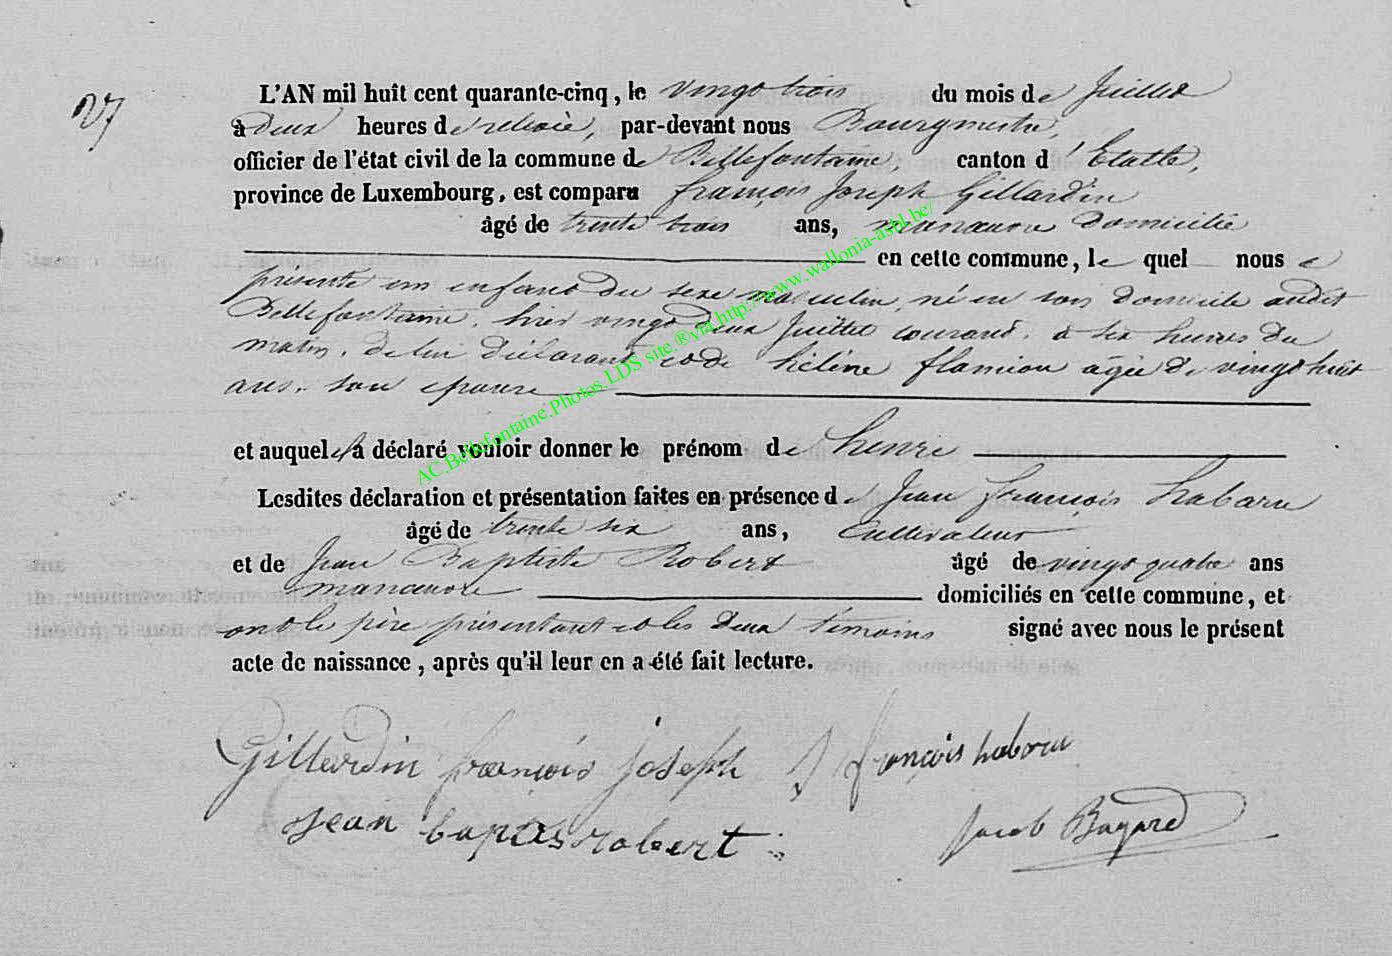 27
L'AN mil huit cent quarante-cinq, le vingt trois du mois de Juillet
à deux heures de relevée, par-devant nous Bourgmestre,
officier de l'état civil de la commune de Bellefontaine, canton d'Etalle,
province de Luxembourg, est comparu françois Joseph Gillardin
âgé de trente trois ans, manœuvre domicilié
en cette commune, le quel nous a
présenté un enfant du sexe masculin, né en son domicile audit
Bellefontaine, hier vingt deux Juillet courant, à six heures du
matin, de lui déclarant et de hélène flamion agée de vingt huit
ans, son épouse
et auquel il a déclaré vouloir donner le prénom de henri
Lesdites déclaration et présentation faites en présence de Jean françois habaru
âgé de trente six ans, Cultivateur
et de Jean Baptiste Robert âgé de vingt quatre ans
manœuvre domiciliés en cette commune, et
ont le père présentant et les deux témoins signé avec nous le présent
acte de naissance, après qu'il leur en a été fait lecture.
Gillardin françois joseph J françois habaru
jean baptis robert Jacob Bayard
AC.Bellefontaine.Photos LDS site.®via.http://www.wallonia-asbl.be/